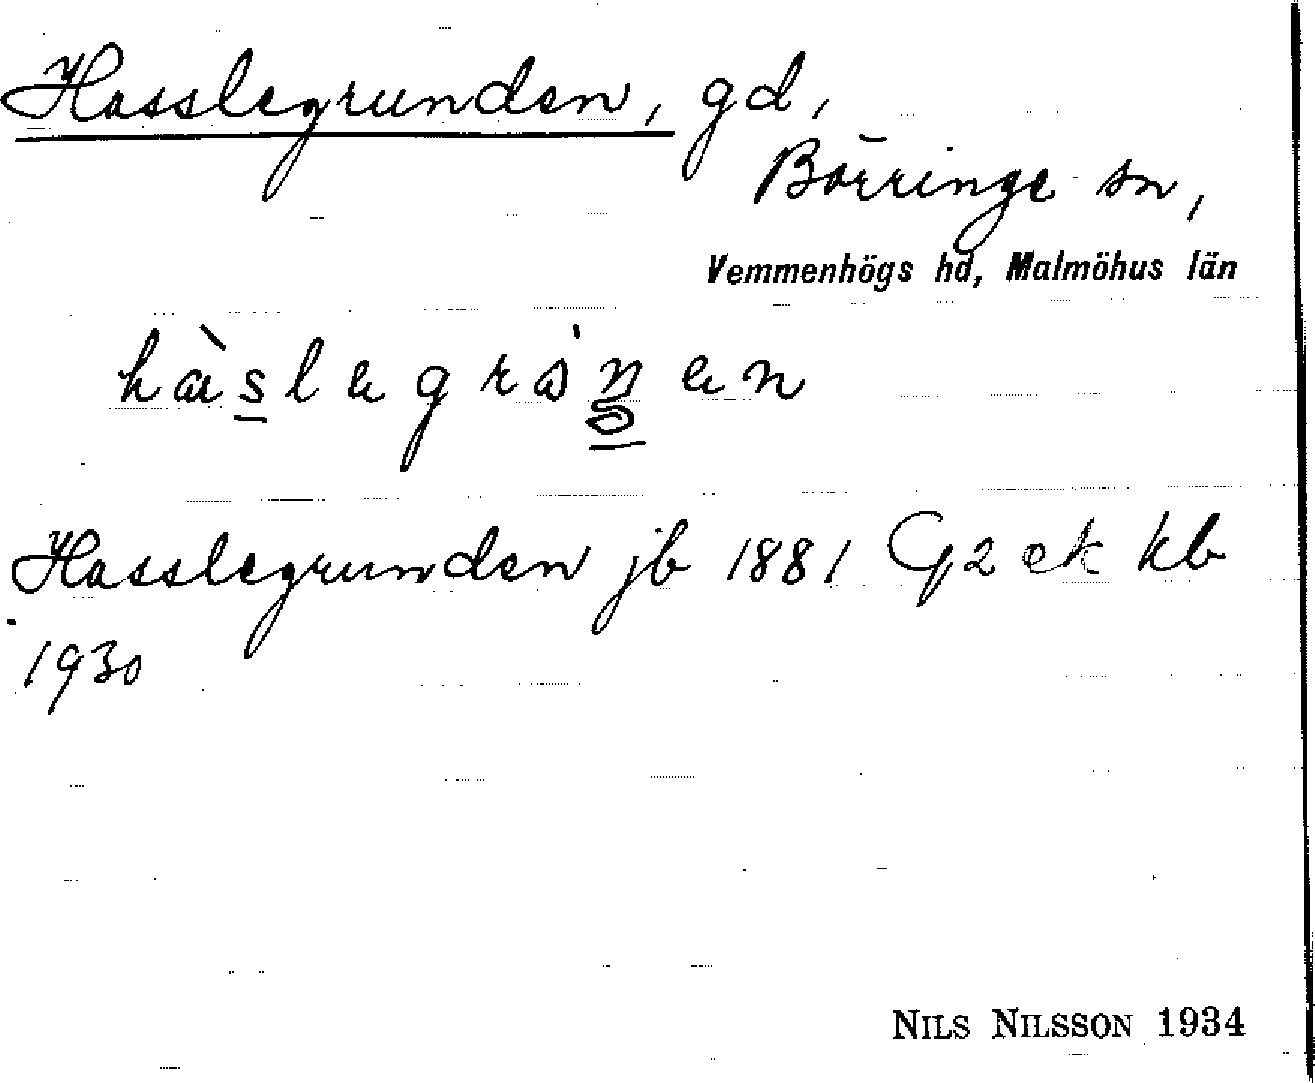 Hasslegrunden, gd,
Börringe sn,
Vemmenhögs hd, Malmöhus län
Hasslegrunden jb 1881 G2 ek kb
1930
NILS NILSSON 1934